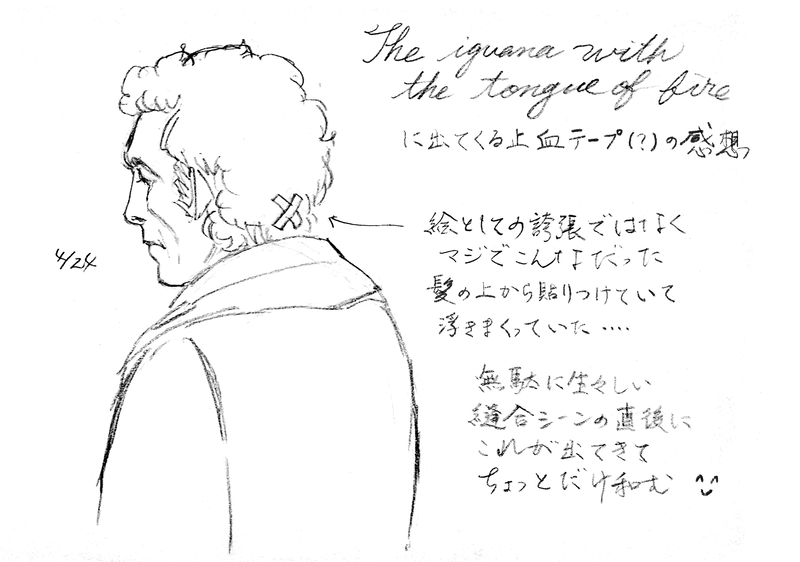 The iguana with
the tongue of fire
に出てくる止血テープ(?)の感想
絵としての誇張ではなく
マジでこんなだった
髪の上から貼りつけていて
浮きまくっていた....
4/24
無駄に生々しい
縫合シーンの直後に
これが出てきて
ちょっとだけ和む